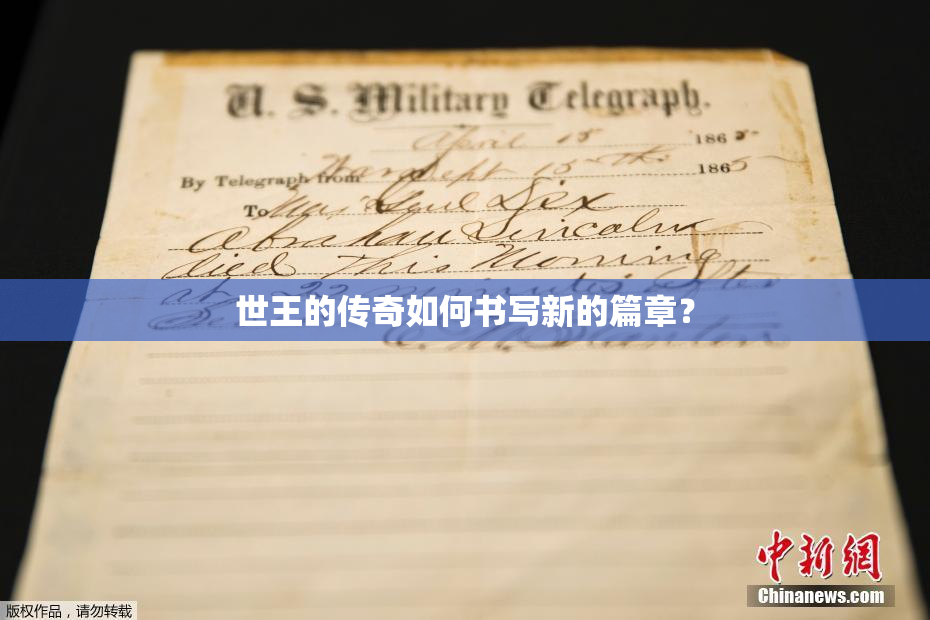 U. S. Military Telegraph.
April 15 1865
By Telegraph from War Dept 15th 1865
To Maj Genl Dix
Abraham Lincoln
died This Morning
at 22 minutes after
世王的传奇如何书写新的篇章？
Stanton
中新网
Chinanews.com
版权作品，请勿转载